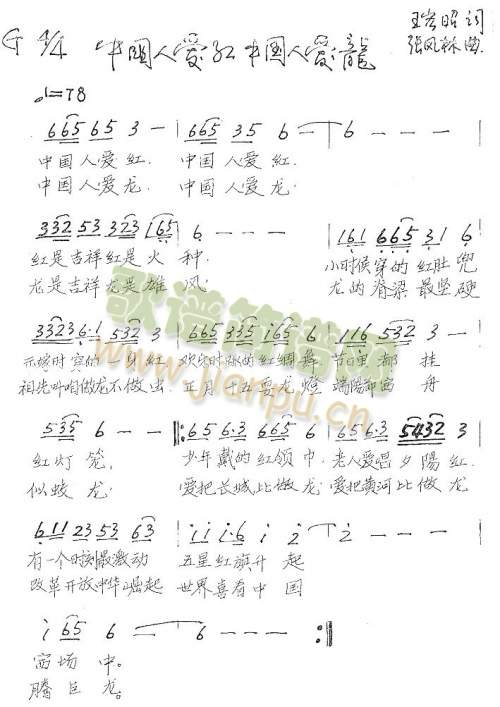 G 4/4 中國人爱红 中国人爱龍
王岩昭词
张凤林曲
♩=78
665 65 3 — | 665 35 6 — | 6 — — —
中国人爱红. 中国人爱红.
中国人爱龙. 中国人爱龙.
332 53 323 165 | 6. — — — | 161 665 31 6
红是吉祥红是火种. 小时候穿的红肚兜
龙是吉祥龙是雄风. 龙的脊梁最坚硬
3323 6·1 532 3 | 665 335 i65 6 | 116 532 3 —
时穿的一身红 欢乐时 的红绸舞 节日里都挂
祖先叫咱做龙不做虫. 正月十五耍龙燈 端陽都 舟
535 6 — — |: 65 6·3 665 6 | 65 6·3 5432 3
红灯笼, 少年戴的红领巾. 老人爱唱夕陽红.
似蛟龙. 爱把长城比做龙 爱把黄河比做龙
611 23 53 63 | i i i·6 i 2 — | 2 — — —
有一个时刻最激动 五星红旗升起
改革开放中华崛起 世界喜看中国
i 65 6 — | 6 — — — :|
场中。
腾巨龙。
歌谱简谱网
www.jianpu.cn